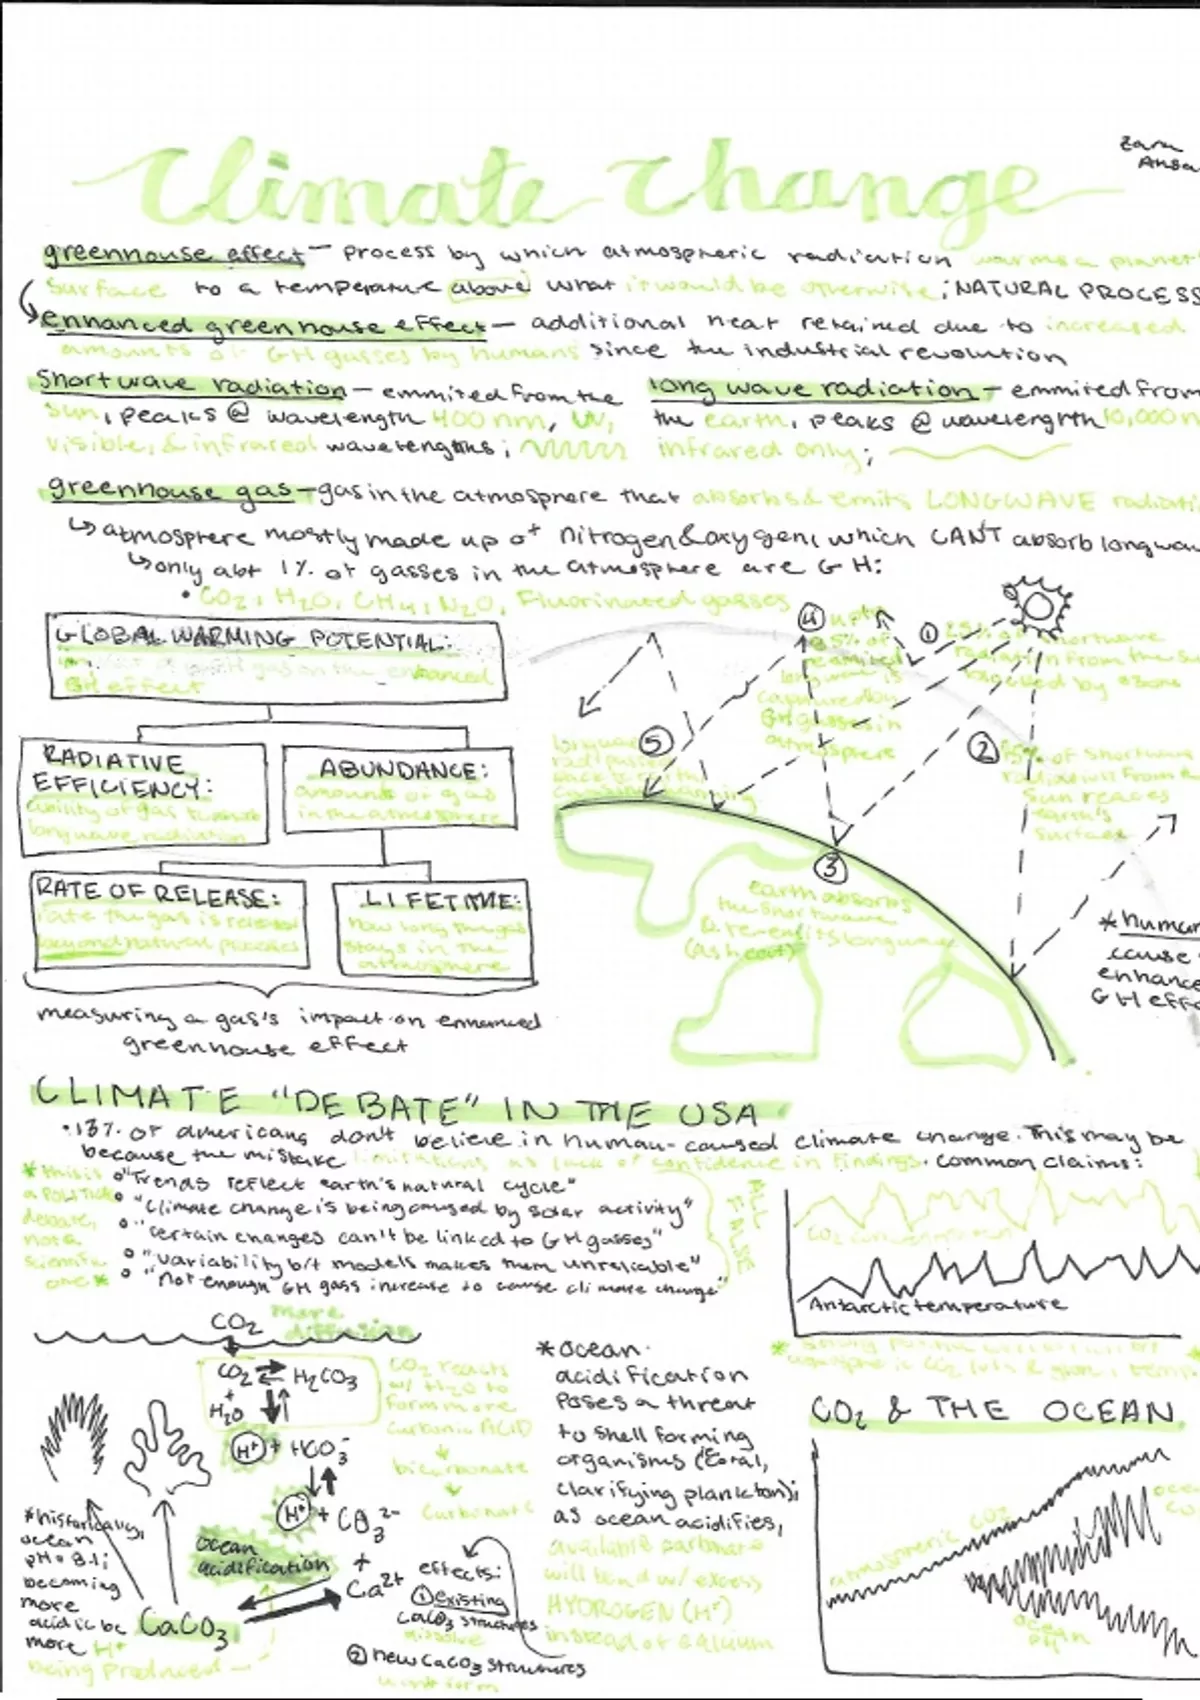 Climate Change
Zara
Ansa
greenhouse effect — process by which atmospheric radiation warms a planet
surface to a temperature above what it would be otherwise; NATURAL PROCESS
enhanced greenhouse effect — additional heat retained due to increased
amounts of GH gasses by humans since the industrial revolution
shortwave radiation — emmited from the
sun, peaks @ wavelength 400 nm, UV,
visible, & infrared wavelengths;
long wave radiation — emmited from
the earth, peaks @ wavelength 10,000 n
infrared only;
greenhouse gas — gas in the atmosphere that absorbs & emits LONGWAVE radiati
↳ atmosphere mostly made up of nitrogen & oxygen, which CAN'T absorb longwa
↳ only abt 1% of gasses in the atmosphere are GH:
• CO2, H2O, CH4, N2O, Fluorinated gasses
GLOBAL WARMING POTENTIAL:
GH gas on the enhanced
GH effect
RADIATIVE
EFFICIENCY:
ability of gas to absorb
longwave radiation
ABUNDANCE:
amount of gas
in the atmosphere
RATE OF RELEASE:
rate the gas is released
beyond natural processes
LIFETIME:
how long the gas
stays in the
atmosphere
measuring a gas's impact on enhanced
greenhouse effect
① 25% of shortwave
radiation from the su
② of shortwave
radiation from
sun reaches
earth's
surface
③
earth absorbs
the shortwave
& reemits longwave
(as heat)
④ up to
85% of
reemitted
longwave is
captured by
GH gasses in
atmosphere
⑤
longwave
rad passes
back to earth
causing warming
* human
cause
enhance
GH effe
CLIMATE "DEBATE" IN THE USA
• 13% of americans don't believe in human-caused climate change. This may be
because the mistake limitations as lack of confidence in findings. common claims:
* this is
a political
debate,
not a
scientific
one *
° "Trends reflect earth's natural cycle"
° "Climate change is being caused by solar activity"
° "certain changes can't be linked to GH gasses"
° "variability b/t models makes them unreliable"
° "Not enough GH gass increase to cause climate change"
ALL FALSE
CO2 concentration
Antarctic temperature
CO2
more
diffusion
CO2 ⇌ H2CO3
+
H2O
H+ + HCO3-
H+ + CO3 2-
+
Ca2+
CaCO3
ocean
acidification
CO2 reacts
w/ H2O to
form more
carbonic ACID
↓
bicarbonate
↓
Carbonate
* historically,
ocean
pH = 8.1;
becoming
more
acidic bc
more H+
being produced
effects:
① existing
CaCO3 structures
dissolve
② new CaCO3 structures
won't form
* ocean
acidification
poses a threat
to shell forming
organisms (coral,
clarifying plankton);
as ocean acidifies,
available carbonate
will bond w/ excess
HYDROGEN (H+)
instead of calcium
CO2 & THE OCEAN
atmospheric CO2
ocean
pH